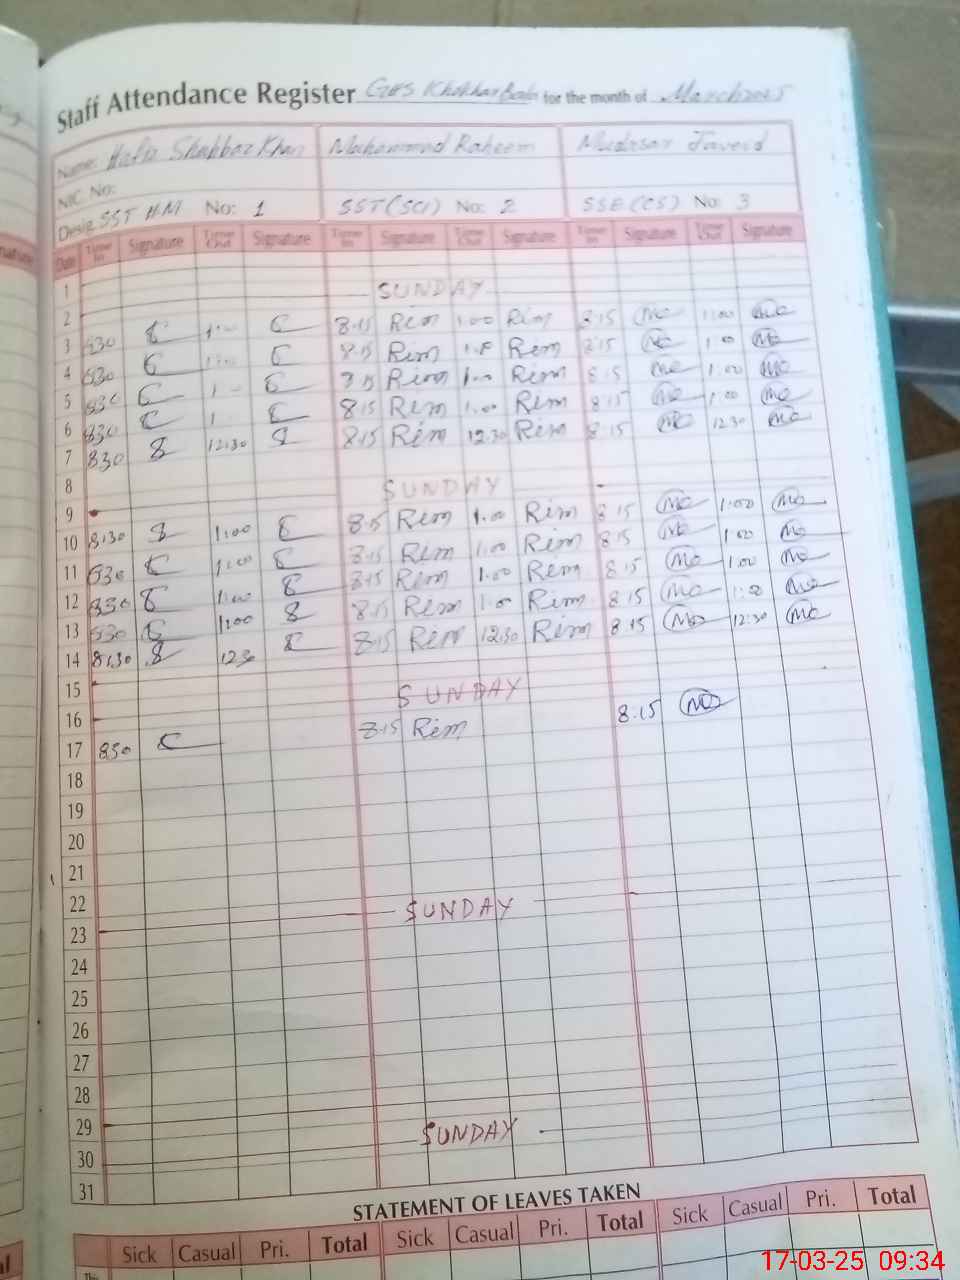 Staff Attendance Register GHS Khokhar Bala for the month of March 2025
Name: Hafiz Shahbaz Khan Muhammad Raheem Mudasar Javeid
NIC. No:
Desig: SST HM No: 1 SST (SCI) No: 2 SSE (CS) No: 3
Date Time In Signature Time Out Signature Time In Signature Time Out Signature Time In Signature Time Out Signature
1
SUNDAY
2
3 830 1:00 8.15 Rim 1.00 Rim 8.15 MO 1:00 MO
4 830 8.15 Rim Rim 8.15 MO 1:00 MO
5 830 8.15 Rim 1.00 Rim 8.15 MO 1:00 MO
6 830 8.15 Rim 1.00 Rim 8.15 MO 1:00 MO
7 830 12:30 8.15 Rim 12.30 Rim 8.15 MO 12:30 MO
8
SUNDAY
9
10 8:30 1:00 8.15 Rim 1.00 Rim 8.15 MO 1:00 MO
11 830 1:00 8.15 Rim 1.00 Rim 8.15 MO 1:00 MO
12 830 1:00 8.15 Rim 1.00 Rim 8.15 MO 1:00 MO
13 830 1:00 8.15 Rim 1.00 Rim 8.15 MO 1:00 MO
14 8:30 1230 8.15 Rim 12.30 Rim 8.15 MO 12:30 MO
15
SUNDAY
16
17 850 8.15 Rim 8.15 MO
18
19
20
21
22
SUNDAY
23
24
25
26
27
28
29
SUNDAY
30
31
STATEMENT OF LEAVES TAKEN
Sick Casual Pri. Total Sick Casual Pri. Total Sick Casual Pri. Total
17-03-25 09:34